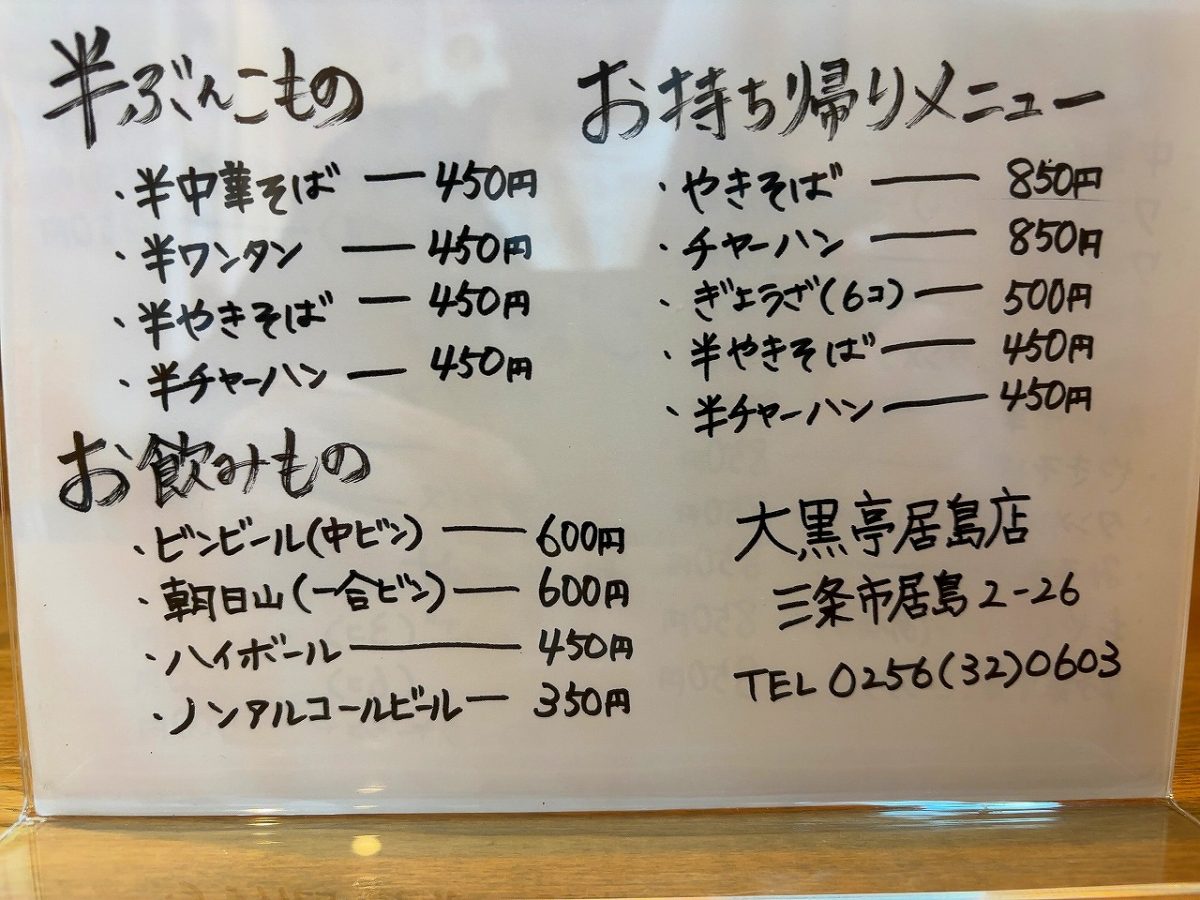 半ぶんこもの
・半中華そば ― 450円
・半ワンタン ― 450円
・半やきそば ― 450円
・半チャーハン ― 450円
お飲みもの
・ビンビール(中ビン) ― 600円
・朝日山(一合ビン) ― 600円
・ハイボール ― 450円
・ノンアルコールビール ― 350円
お持ち帰りメニュー
・やきそば ― 850円
・チャーハン ― 850円
・ぎょうざ(6コ) ― 500円
・半やきそば ― 450円
・半チャーハン ― 450円
大黒亭居島店
三条市居島2-26
TEL 0256(32)0603